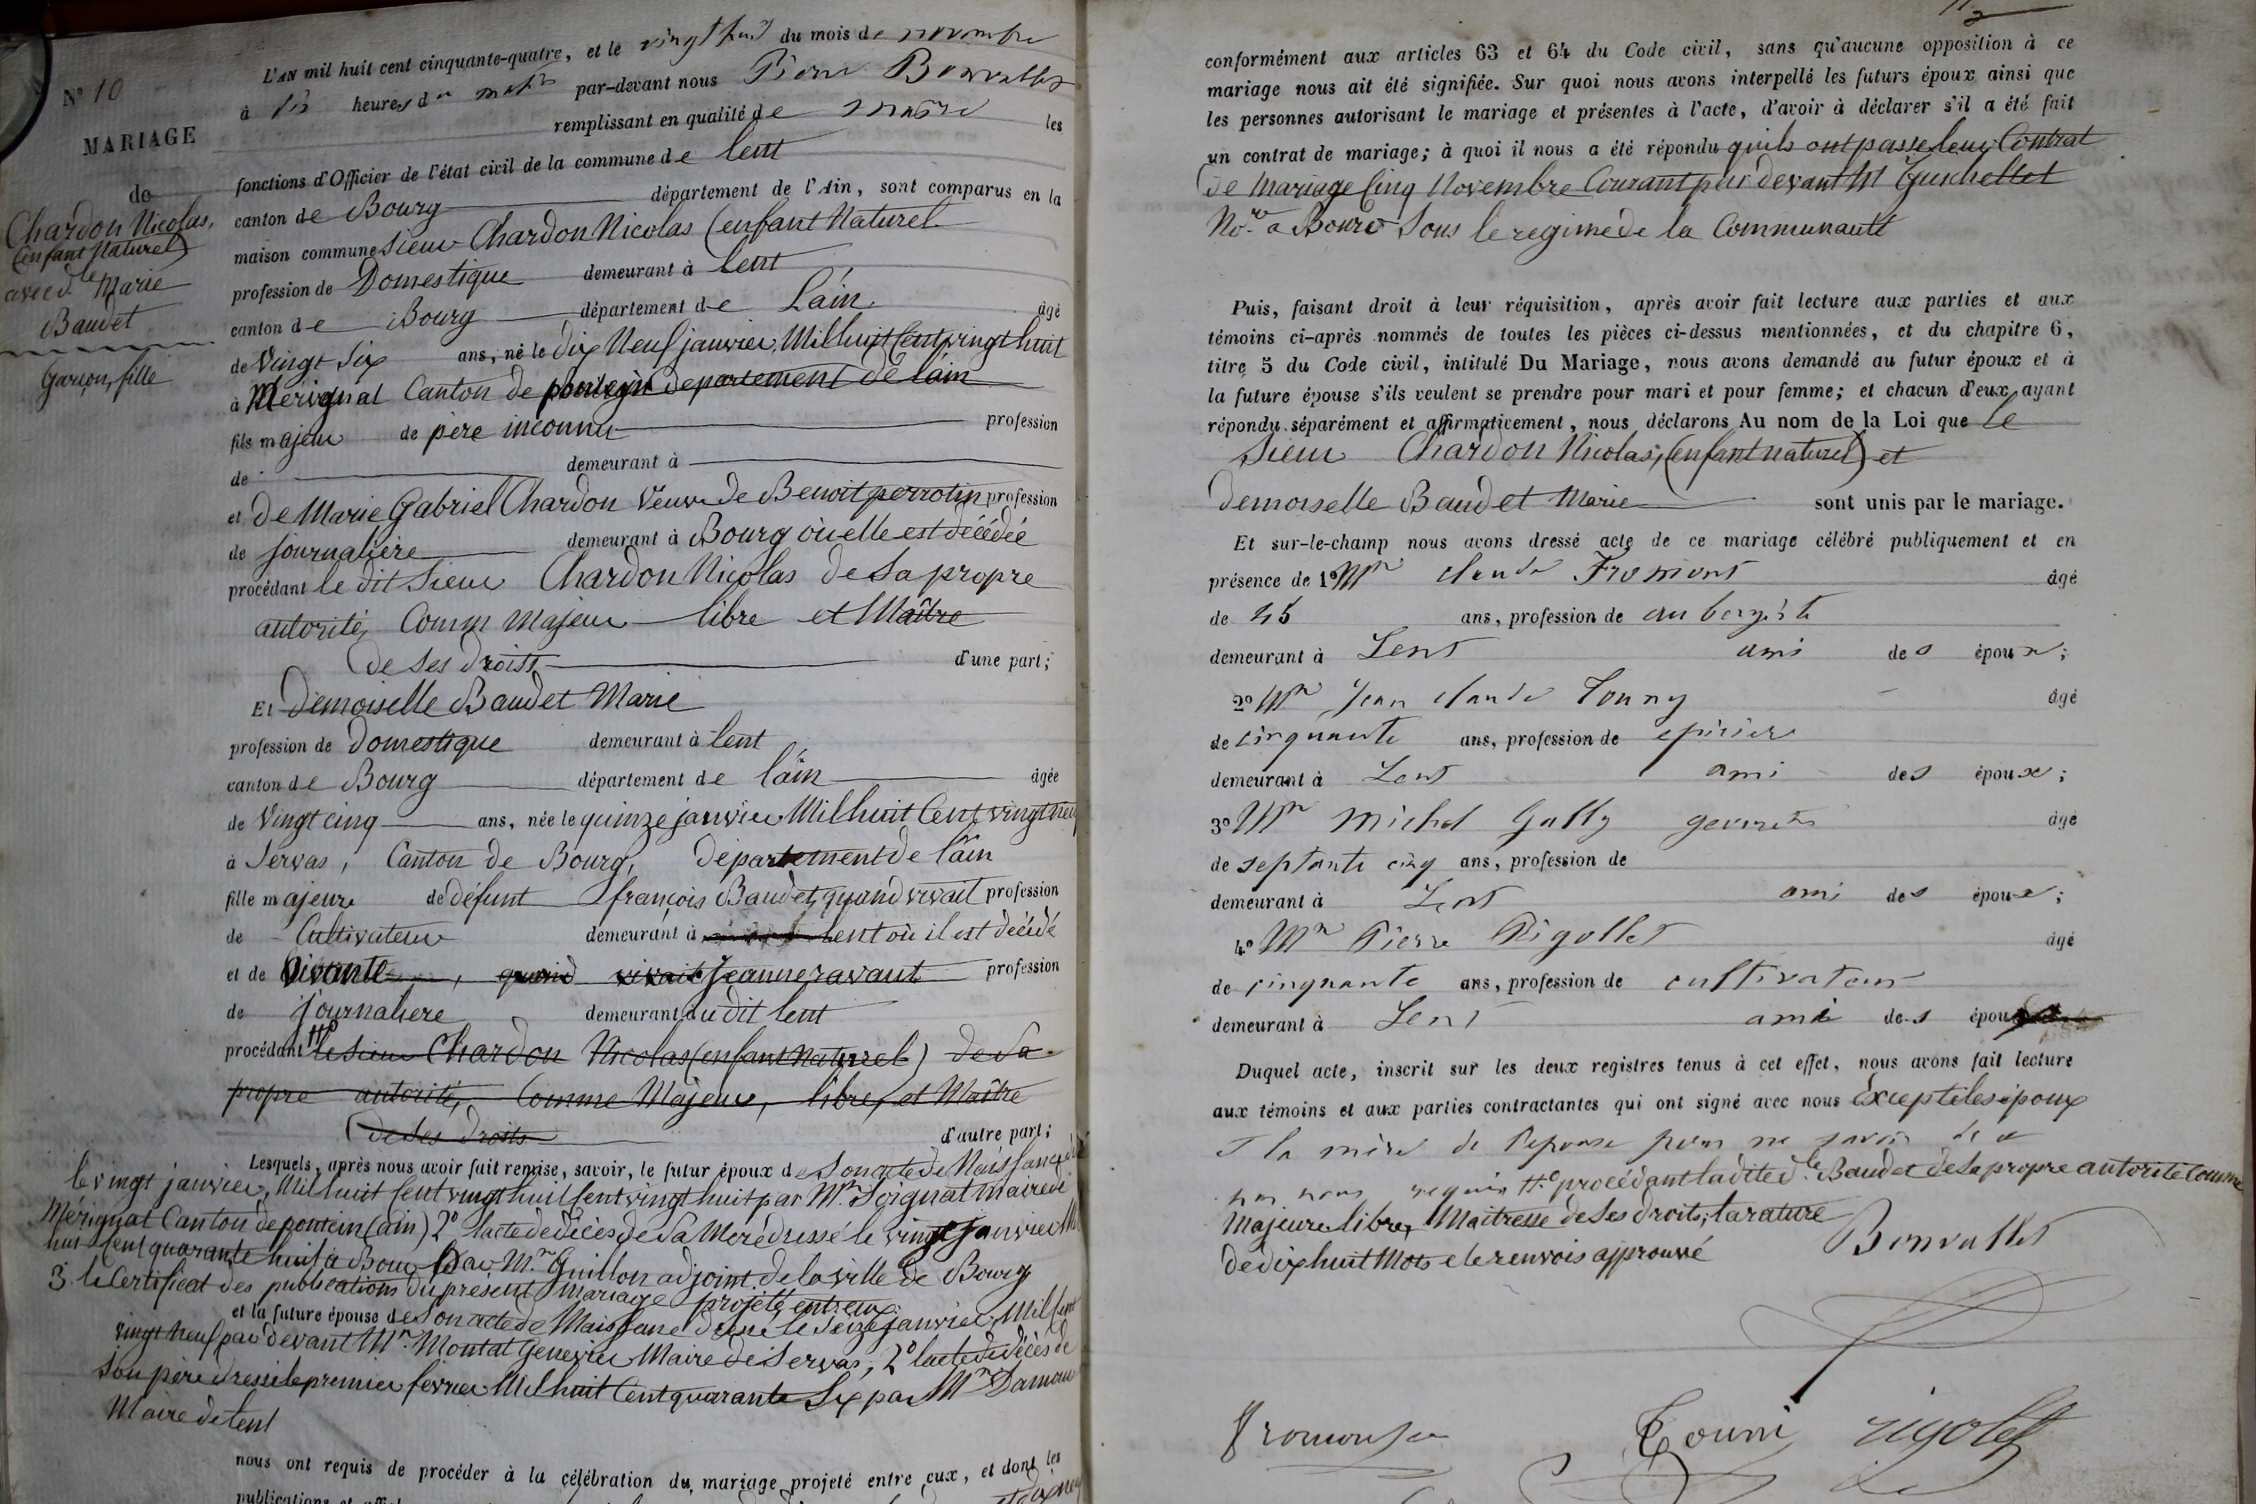 N° 10
MARIAGE
de
Chardon Nicolas,
(enfant Naturel)
avec d.lle Marie
Baudet
Garçon, fille
L'AN mil huit cent cinquante-quatre, et le vingt huit du mois de novembre
à dix heures du matin par-devant nous Pierre Bonvallet
remplissant en qualité de maire les
fonctions d'Officier de l'état civil de la commune de lent
canton de Bourg département de l'Ain, sont comparus en la
maison commune sieur Chardon Nicolas (enfant Naturel
profession de Domestique demeurant à lent
canton de Bourg département de L'ain. âgé
de Vingt Six ans, né le dix Neuf janvier, Mil huit Cent vingt huit
à Mérignat Canton de departement de l'ain
fils majeur de père inconnu profession
de demeurant à
et de Marie Gabriel Chardon Veuve de Benoit perrotin profession
de journalière demeurant à Bourg où elle est décédée
procédant le dit Sieur Chardon Nicolas de Sa propre
autorité, Comm Majeur libre et Maître
de Ses droits, d'une part;
Et Demoiselle Baudet Marie
profession de domestique demeurant à lent
canton de Bourg département de l'ain âgée
de Vingt cinq ans, née le quinze janvier Mil huit Cent vingt neuf
à Servas, Canton de Bourg, département de l'ain
fille majeure de défunt françois Baudet, quand vivait profession
de Cultivateur demeurant à lent où il est décédé
et de Vivante, quand vivait Jeanne ravant profession
de journaliere demeurant audit lent
procédant le Sieur Chardon Nicolas (enfant Naturel) de Sa
propre autorité, Comme Majeur, libre, et Maître
de Ses droits d'autre part;
Lesquels, après nous avoir fait remise, savoir, le futur époux de Son acte de Naissance
le vingt janvier, Mil huit Cent vingt huit Cent vingt huit par Mr. Soignat maire de
Mérignat Canton de poncin (ain) 2° lacte de décès de Sa Mère dressé le vingt janvier Mil
huit Cent quarante huit à Bourg Par M.r Guillon adjoint de la ville de Bourg
3° le Certificat des publications du présent Mariage projetté entr'eux;
et la future épouse de Son acte de Naissane dressé le Seize janvier, Mil Cent
vingt Neuf par devant Mr. Montat Genevier Maire de Servas, 2° lacte de décès de
Son père dressé le premier fevrier Mil huit Cent quarante Six par Mr
Maire de lent
nous ont requis de procéder à la célébration du mariage projeté entre eux, et dont les
publications
conformément aux articles 63 et 64 du Code civil, sans qu'aucune opposition à ce
mariage nous ait été signifiée. Sur quoi nous avons interpellé les futurs époux ainsi que
les personnes autorisant le mariage et présentes à l'acte, d'avoir à déclarer s'il a été fait
un contrat de mariage; à quoi il nous a été répondu quils ont passé leur Contrat
de Mariage Cinq Novembre Courant par devant Mt
No.re a Bourg Sous le regime de la Communauté
Puis, faisant droit à leur réquisition, après avoir fait lecture aux parties et aux
témoins ci-après nommés de toutes les pièces ci-dessus mentionnées, et du chapitre 6,
titre 5 du Code civil, intitulé Du Mariage, nous avons demandé au futur époux et à
la future épouse s'ils veulent se prendre pour mari et pour femme; et chacun d'eux, ayant
répondu séparément et affirmativement, nous déclarons Au nom de la Loi que le
Sieur Chardon Nicolas, (enfant naturel) et
demoiselle Baudet Marie sont unis par le mariage.
Et sur-le-champ nous avons dressé acte de ce mariage célébré publiquement et en
présence de 1° Mr claude Fromont âgé
de 45 ans, profession de aubergiste
demeurant à Lent ami des époux;
2° Mr Jean claude Tourny âgé
de cinquante ans, profession de épicier
demeurant à Lent ami des époux;
3° Mr Michel Gally âgé
de septante cinq ans, profession de
demeurant à Lent ami des époux;
4° Mr Pierre Rigollet âgé
de cinquante ans, profession de cultivateur
demeurant à Lent ami des époux
Duquel acte, inscrit sur les deux registres tenus à cet effet, nous avons fait lecture
aux témoins et aux parties contractantes qui ont signé avec nous Excepté les époux
et la mère de l'epouse pour ne savoir de ce
par nous requis procédant la dite d.lle Baudet de Sa propre autorité Comme
Majeure, libre, Maitresse de Ses droits, la rature
de dix huit Mots et le renvois approuvé
Bonvallet
Fromont
Tourni
rigolet